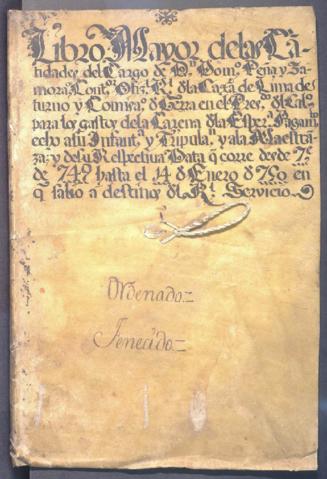 Libro Mayor de las Can-
tidades del Cargo de Dn. Domo. Peña y Za-
mora, Cont. Ofizl. Rl. de la Caxa de Lima de
turno y Comisao. de Grra en el Presio. del Cal-
para los gastos de la Carena de la Esper. Pagam.
echo a su Infant. y Tripula. y a la Maestran-
za: y de su Respectiva Data q corre desde 7
de 749 hasta el 14 de Enero de 750 en
q salio a destino del Rl. Servicio
Ordenado=
Fenecido=